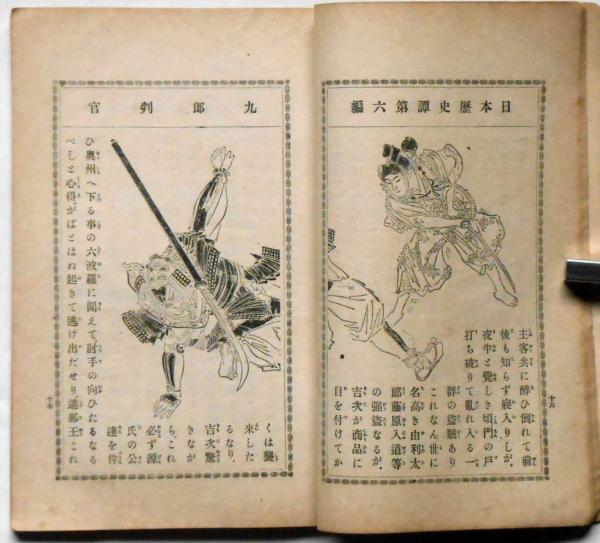 日本歴史譚第六編
主客共に酔ひ倒れて前
後も知らず寝入りしが、
夜半と覚しき頃門の戸
打ち破りて乱れ入る一
群の盗賊あり
これなん世に
名高き由利太
郎藤原入道等
の強盗なるが、
吉次が商品に
目を付けてか
十六
九郎判官
くは襲
来した
るなり、
吉次驚
きなが
ら、これ
必ず源
氏の公
達を伴
ひ奥州へ下る事の六波羅に聞えて、討手の向ひたるなる
べしと心得、がばとはね起きて逃げ出だせり遮那王これ
十七